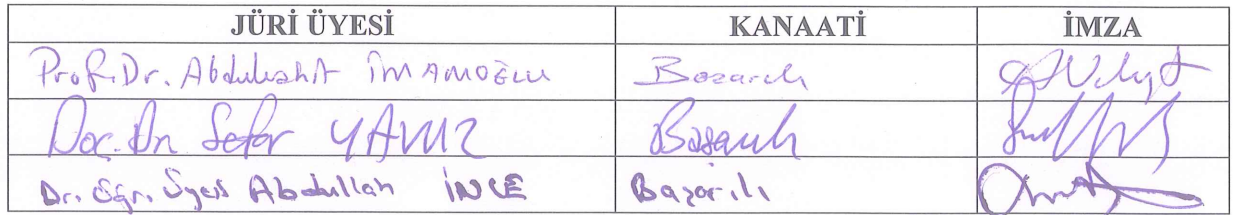 JÜRİ ÜYESİ KANAATİ İMZA
Prof. Dr. Abdulvahit İMAMOĞLU Başarılı
Doç. Dr. Sefer YAVUZ Başarılı
Dr. Öğr. Üyesi Abdullah İNCE Başarılı